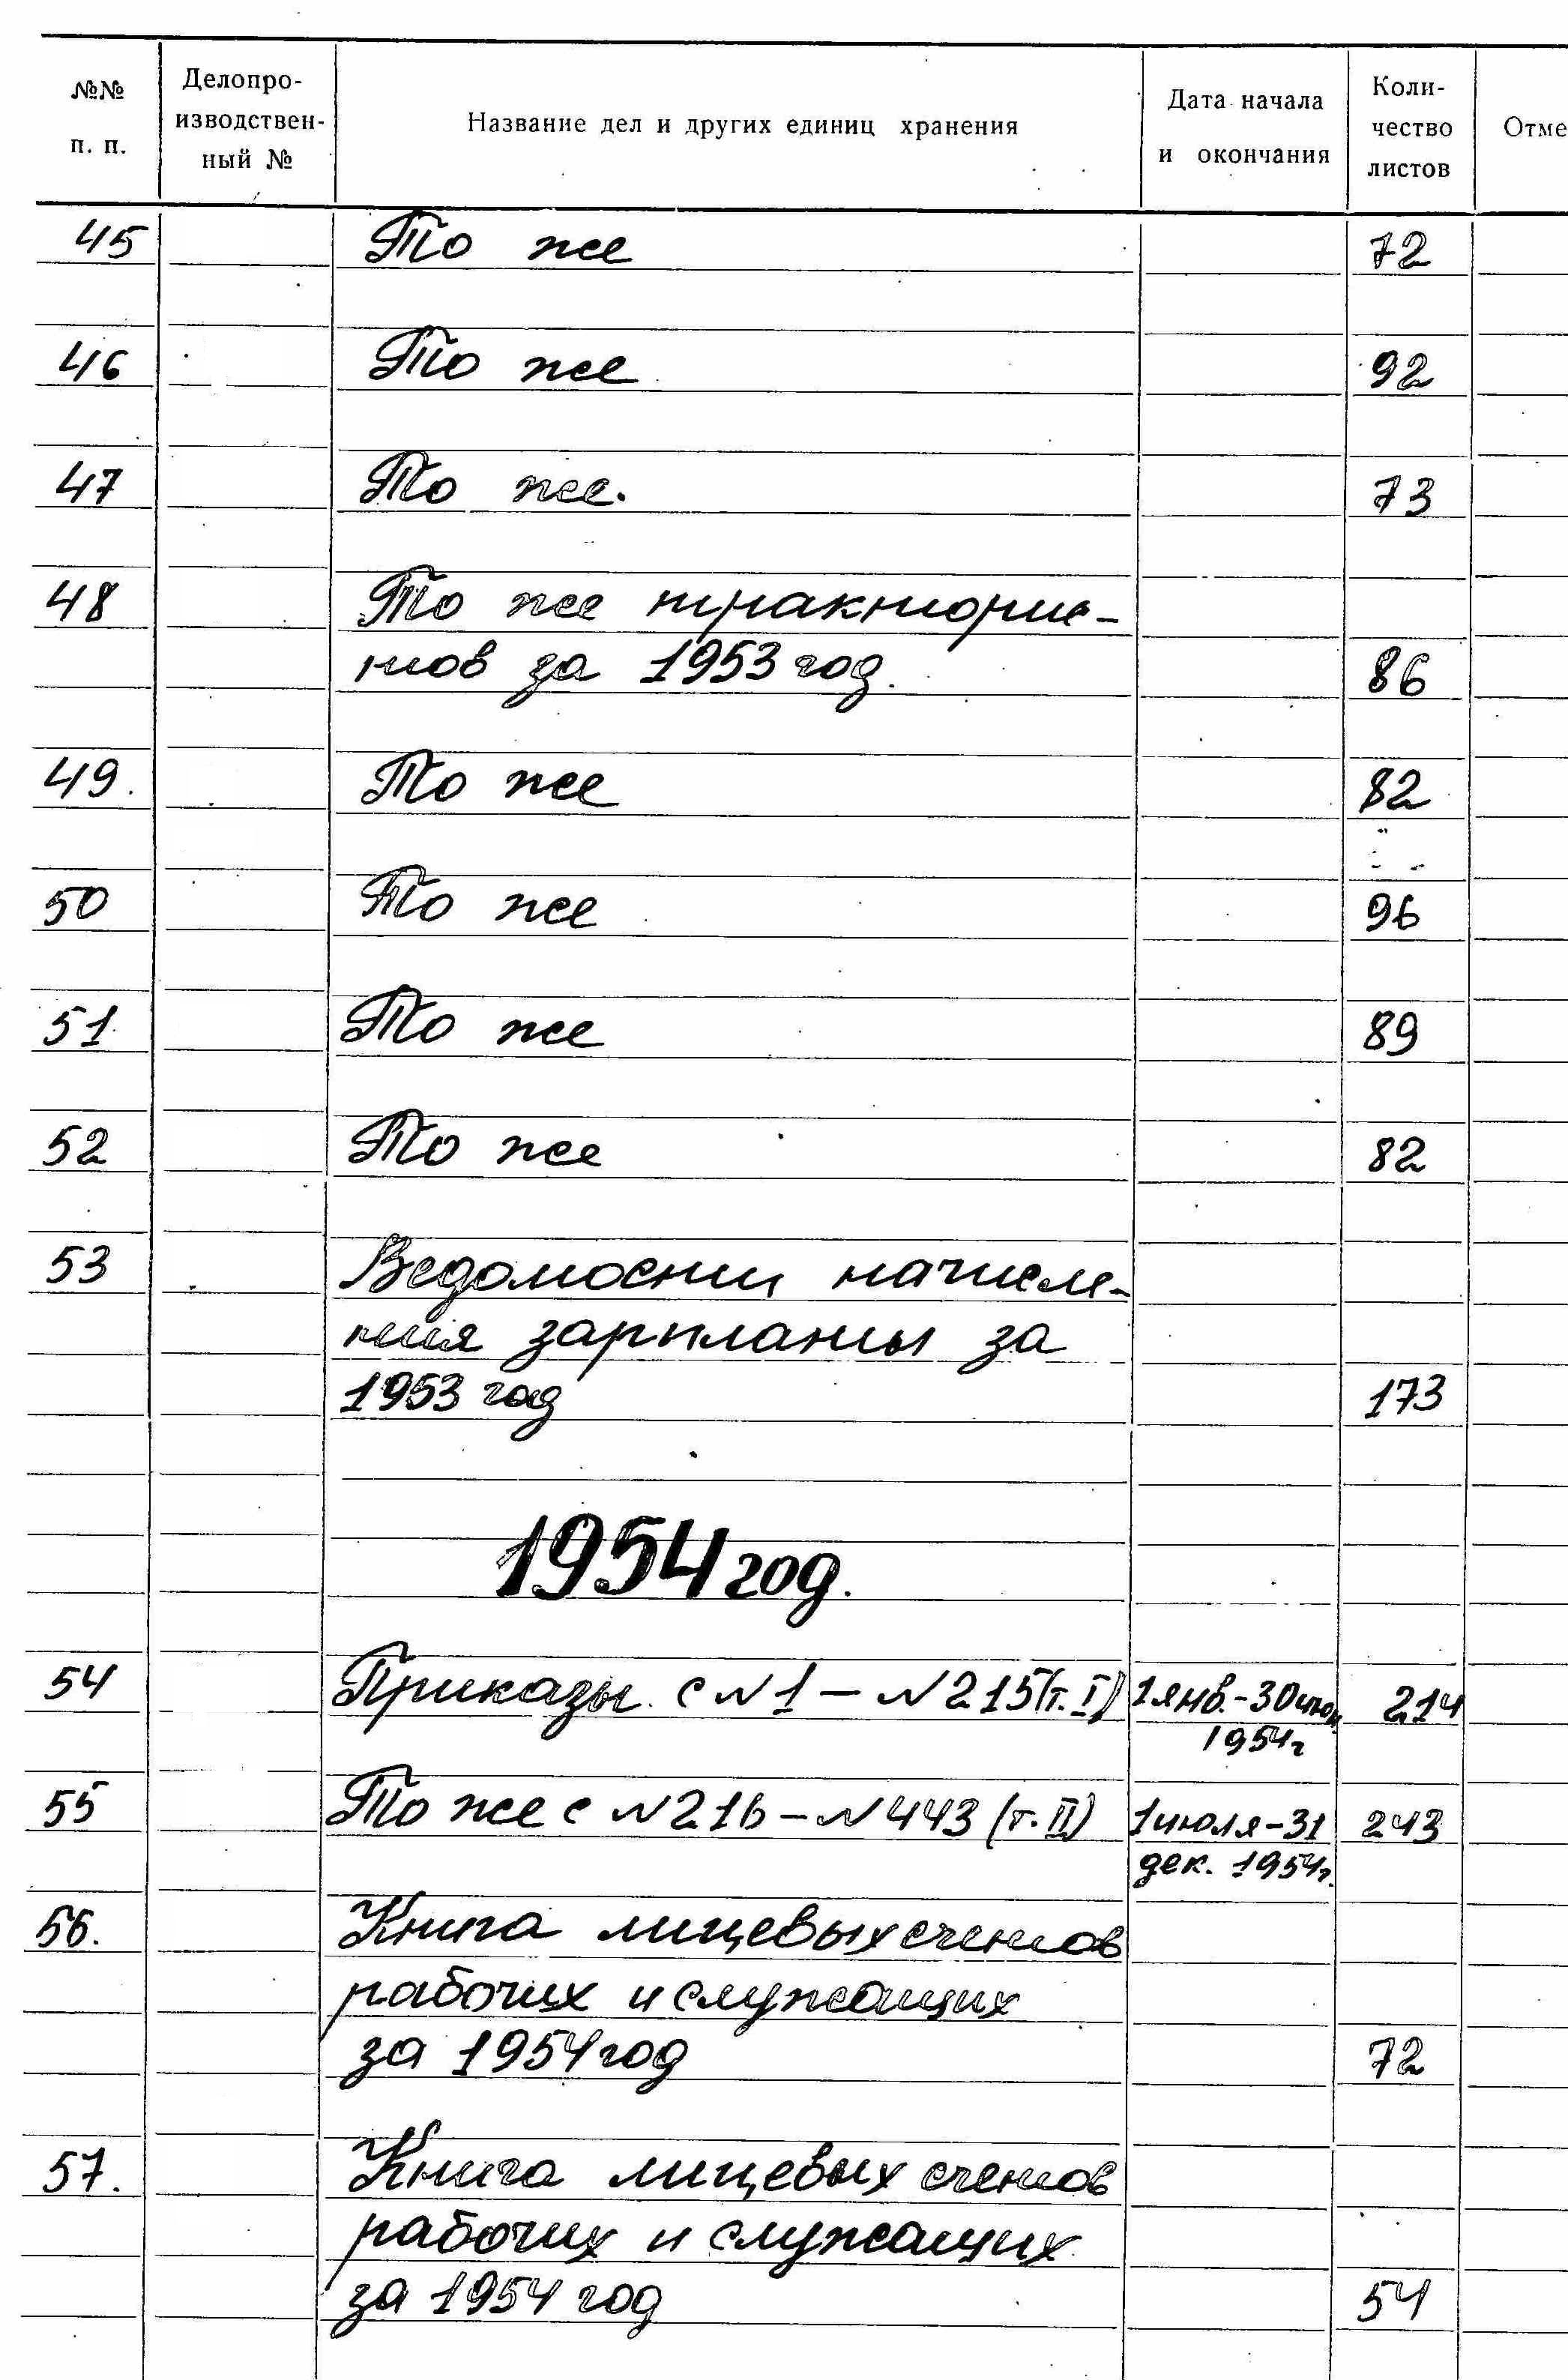 №№ п. п.
Делопро-
изводствен-
ный №
Название дел и других единиц хранения
Дата начала
и окончания
Коли-
чество
листов
Отме
45 То же 72
46 То же 92
47 То же. 73
48 То же трактори-
стов за 1953 год. 86
49. То же 82
50 То же 96
51 То же 89
52 То же 82
53 Ведомости начисле-
ния зарплаты за
1953 год 173
1954 год.
54 Приказы с №1 – №215 (т. I) 1 янв. - 30 июн 214
1954 г
55 То же с №216 – №443 (т. II) 1 июля - 31 243
дек. 1954 г.
56. Книга лицевых счетов
рабочих и служащих
за 1954 год 72
57. Книга лицевых счетов
рабочих и служащих
за 1954 год 54